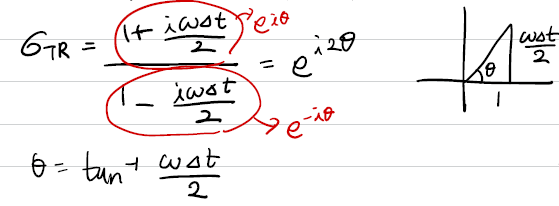 σ_TR = (1 + iωΔt/2) / (1 - iωΔt/2) = e^{i2θ}
e^{iθ}
e^{-iθ}
ωΔt/2
θ
1
θ = tan⁻¹ ωΔt/2